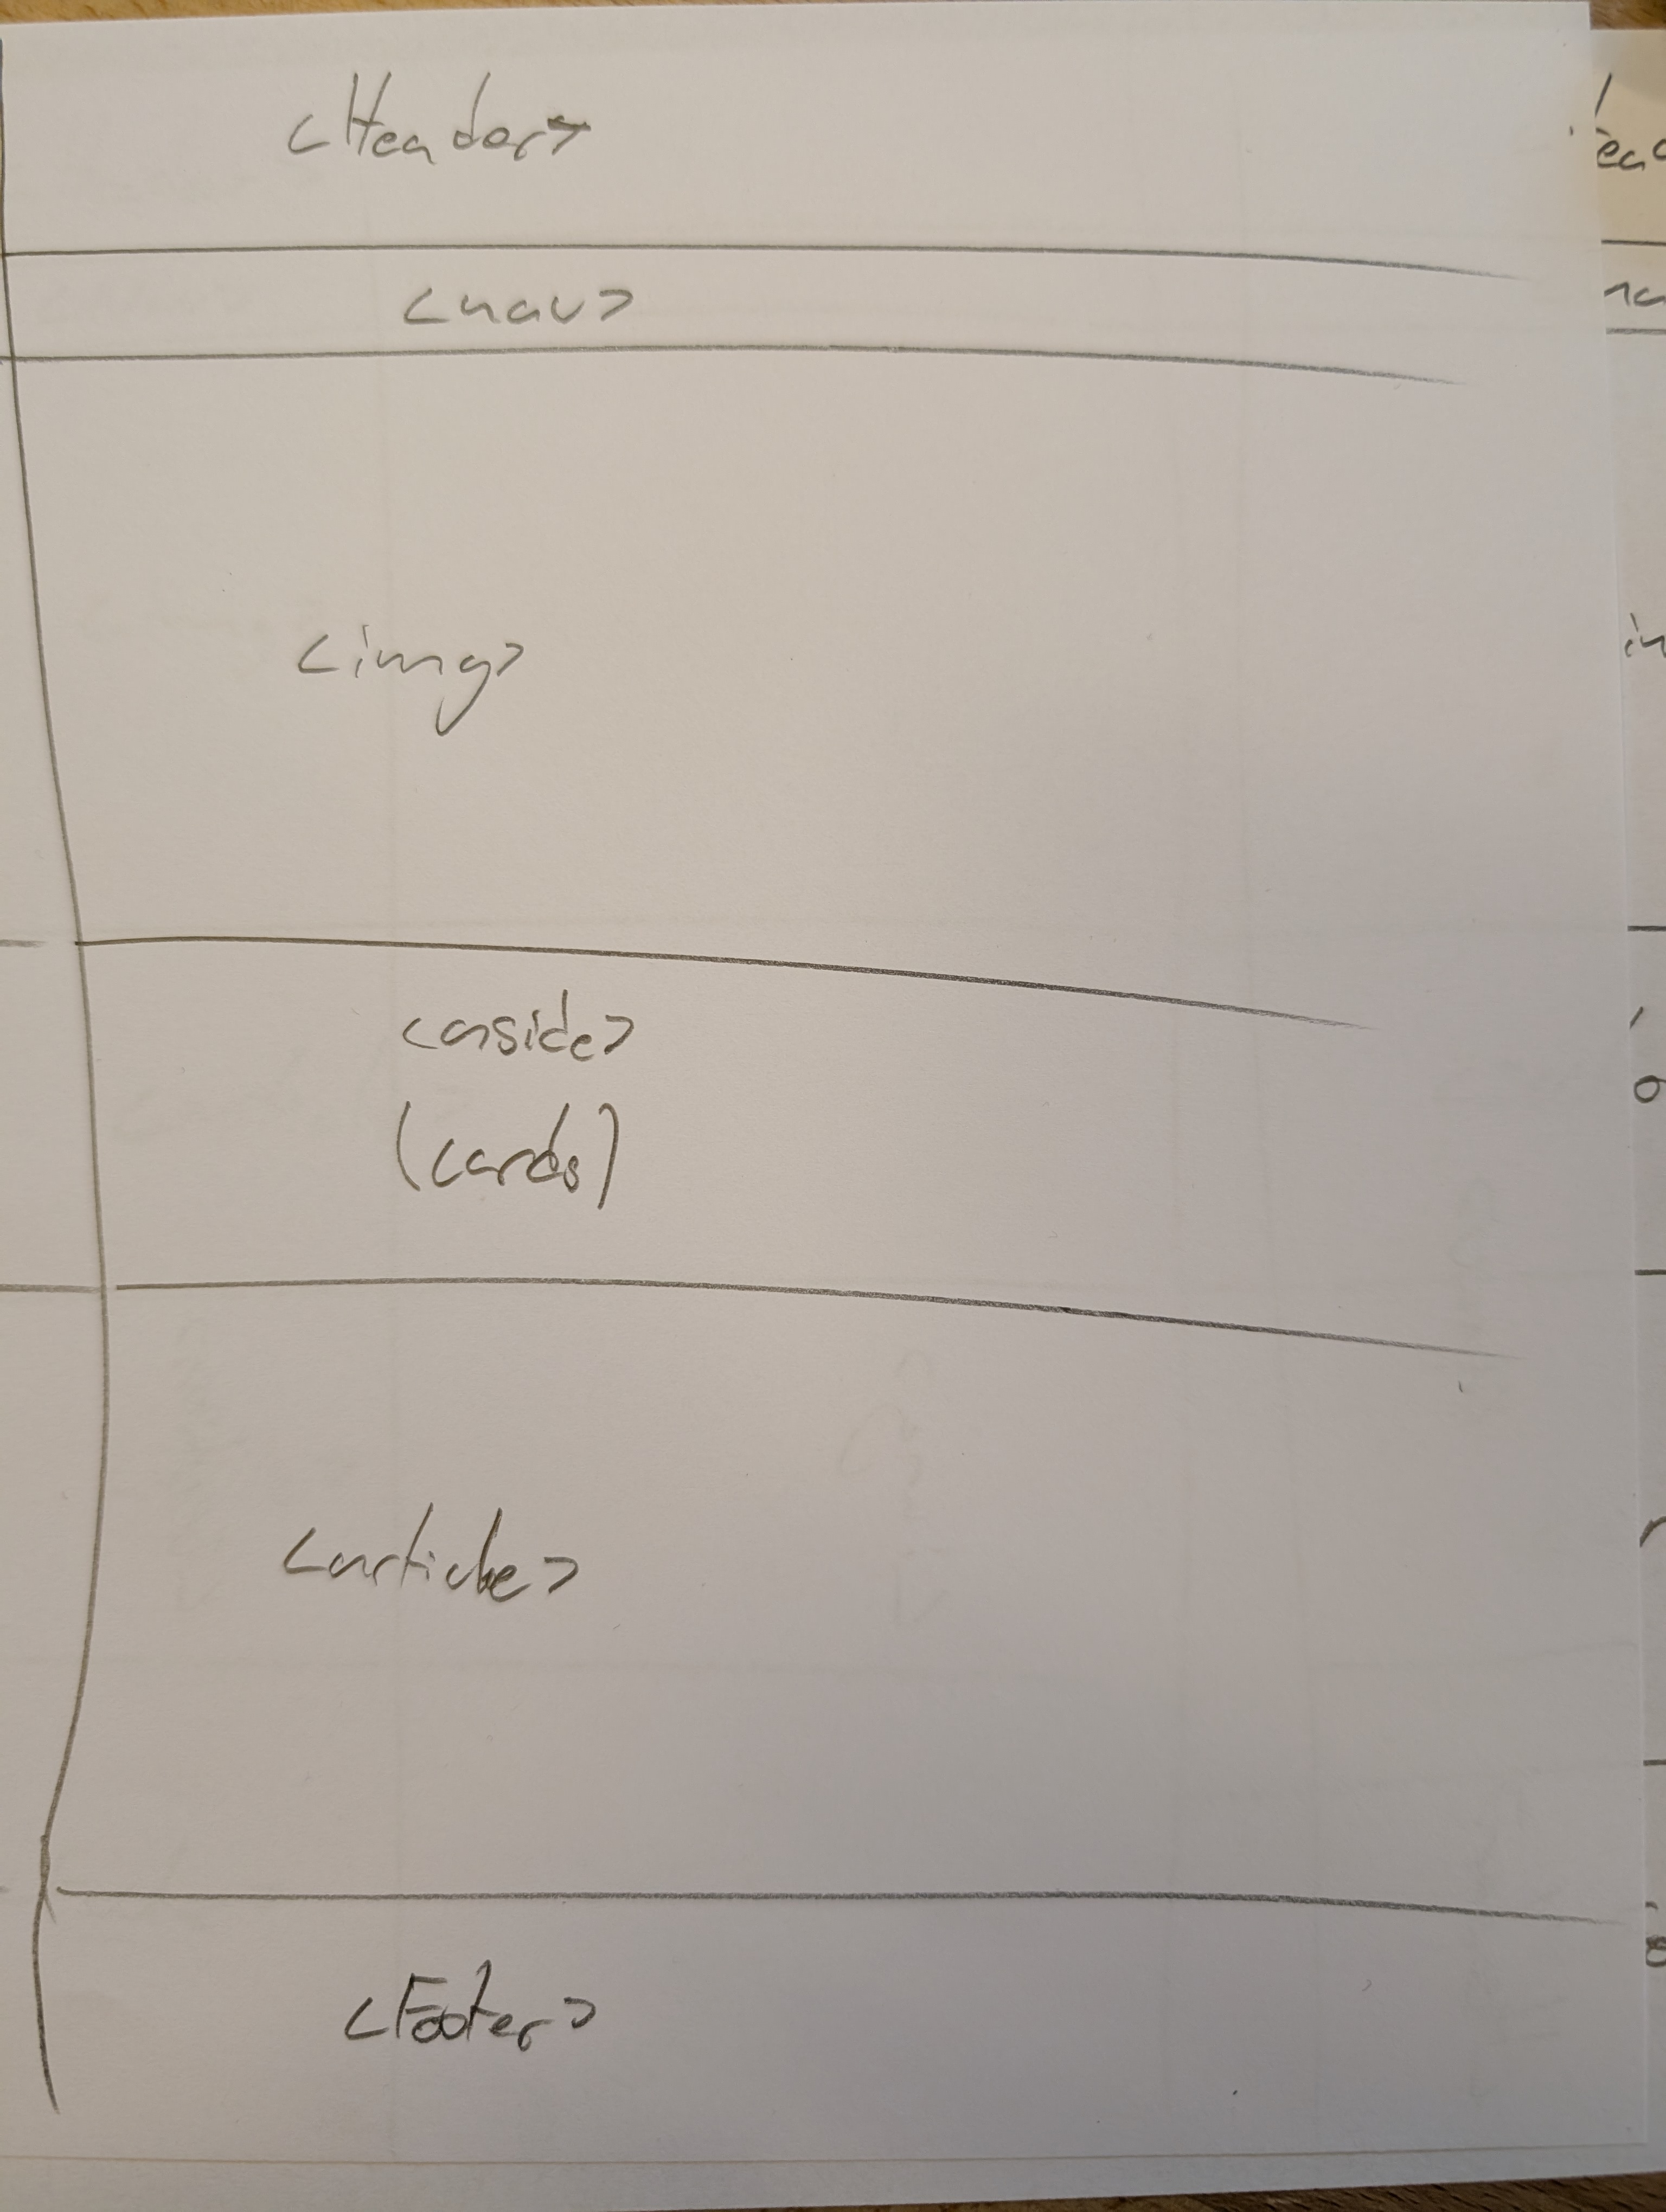 <Header>
<nav>
<img>
<aside>
(cards)
<article>
<Footer>